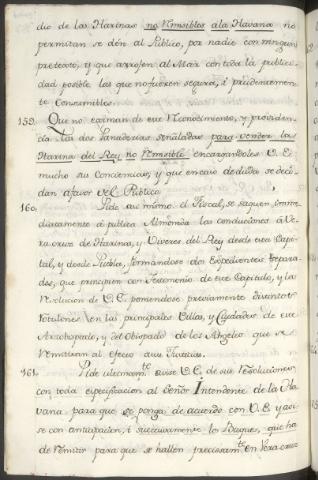 dio de las Harinas no Remisibles a la Havana no
permitan se dén al Público, por nadie con ningun
pretexto, y que arrojen al Mar con toda la publici-
dad posible las que no fueren seguras, ó prudentemente
Consumibles.
159. Que no eximan de este Reconocimiento, y providen-
cia á las dos Panaderias señaladas para vender las
Harinas del Rey no Remisible encargandoles V.E.
mucho sus Conciencias, y que en caso de duda se deci-
dan a favor del Público.
160. Pide asi mismo el Fiscal, se saquen inme-
diatamente á publica Almoneda las conducciones á Ve-
racruz de Harinas, y Viveres del Rey desde esta Capi-
tal, y desde Puebla, formandose dos Expedientes separa-
dos, que principien con Testimonio de este Capitulo, y la
Resolucion de V.E. poniendose previamente distintos
rotulones en las principales Villas, y Ciudades de este
Arzobispado, y del Obispado de los Angeles que se
Remitiran al efecto á sus Justicias.
161. Pide ultimamte. avise V.E. de sus Resoluciones
con toda especificacion al Señor Intendente de la Ha-
vana para que se ponga de acuerdo con V.E. y avi-
se con anticipacion, i sucesivamente los Buques, que ha
de Remitir para que se hallen precisamte. en Vera cruz